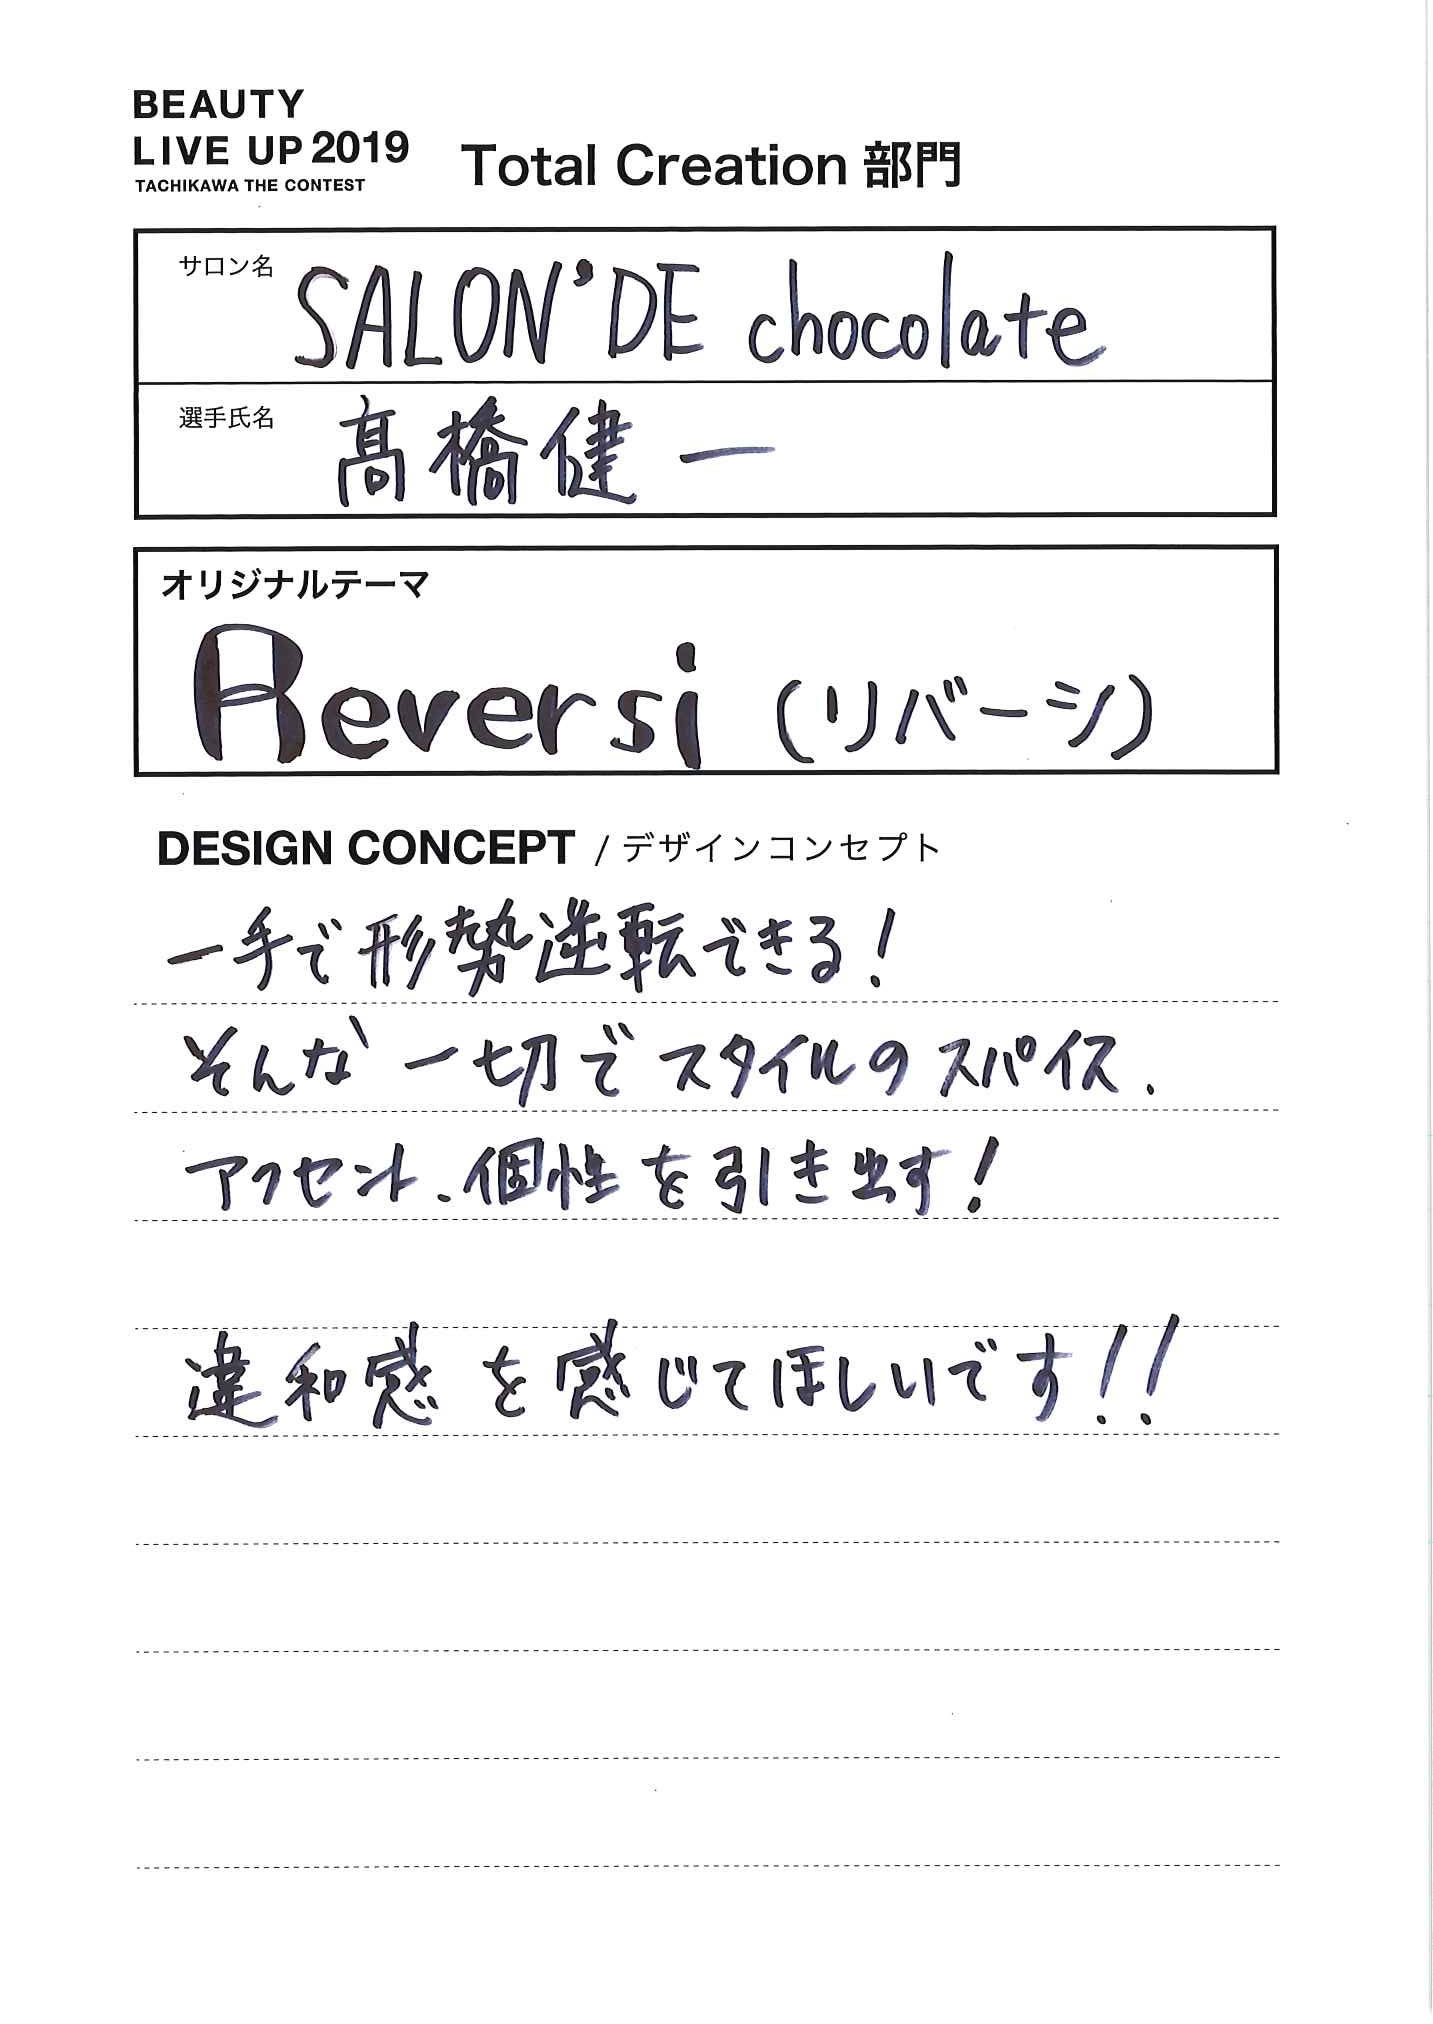 BEAUTY
LIVE UP 2019
TACHIKAWA THE CONTEST
Total Creation 部門
サロン名
SALON'DE chocolate
選手氏名
髙橋健一
オリジナルテーマ
Reversi (リバーシ)
DESIGN CONCEPT / デザインコンセプト
一手で形勢逆転できる!
そんな一切でスタイルのスパイス.
アクセント.個性を引き出す!
違和感を感じてほしいです!!